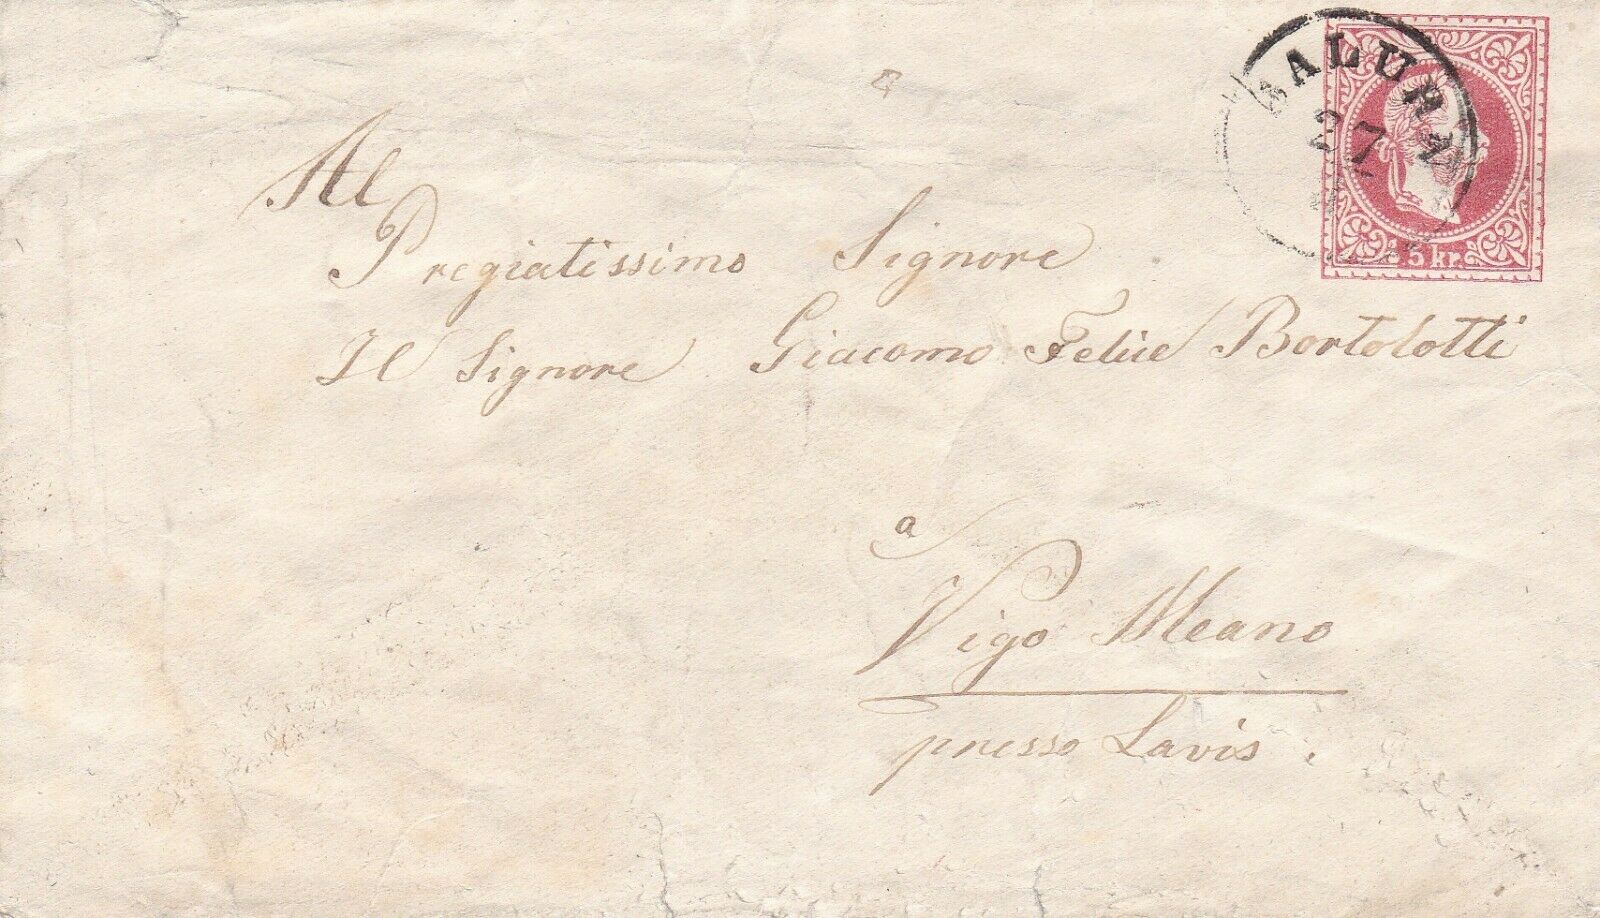 SALURN
27
5 kr.
Al
Pregiatissimo Signore
Il Signore Giacomo Felice Bortolotti
a
Vigo Meano
presso Lavis.